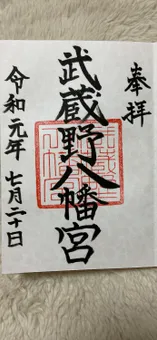 奉拝
武蔵野八幡宮
令和元年 七月二十日